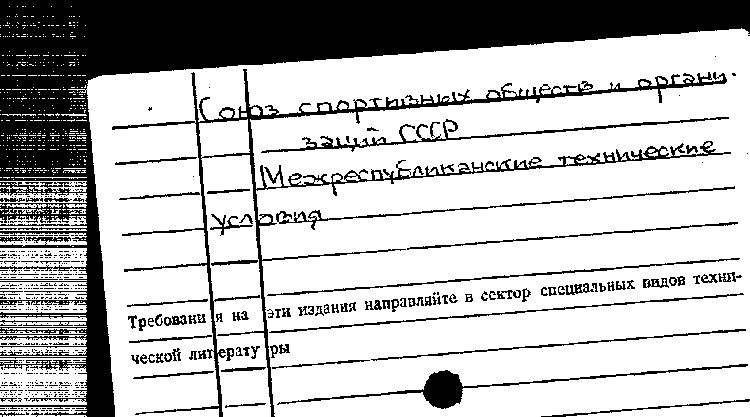 Союз спортивных обществ и органи-
заций СССР
Межреспубликанские технические
условия
Требования на эти издания направляйте в сектор специальных видов техни-
ческой литературы